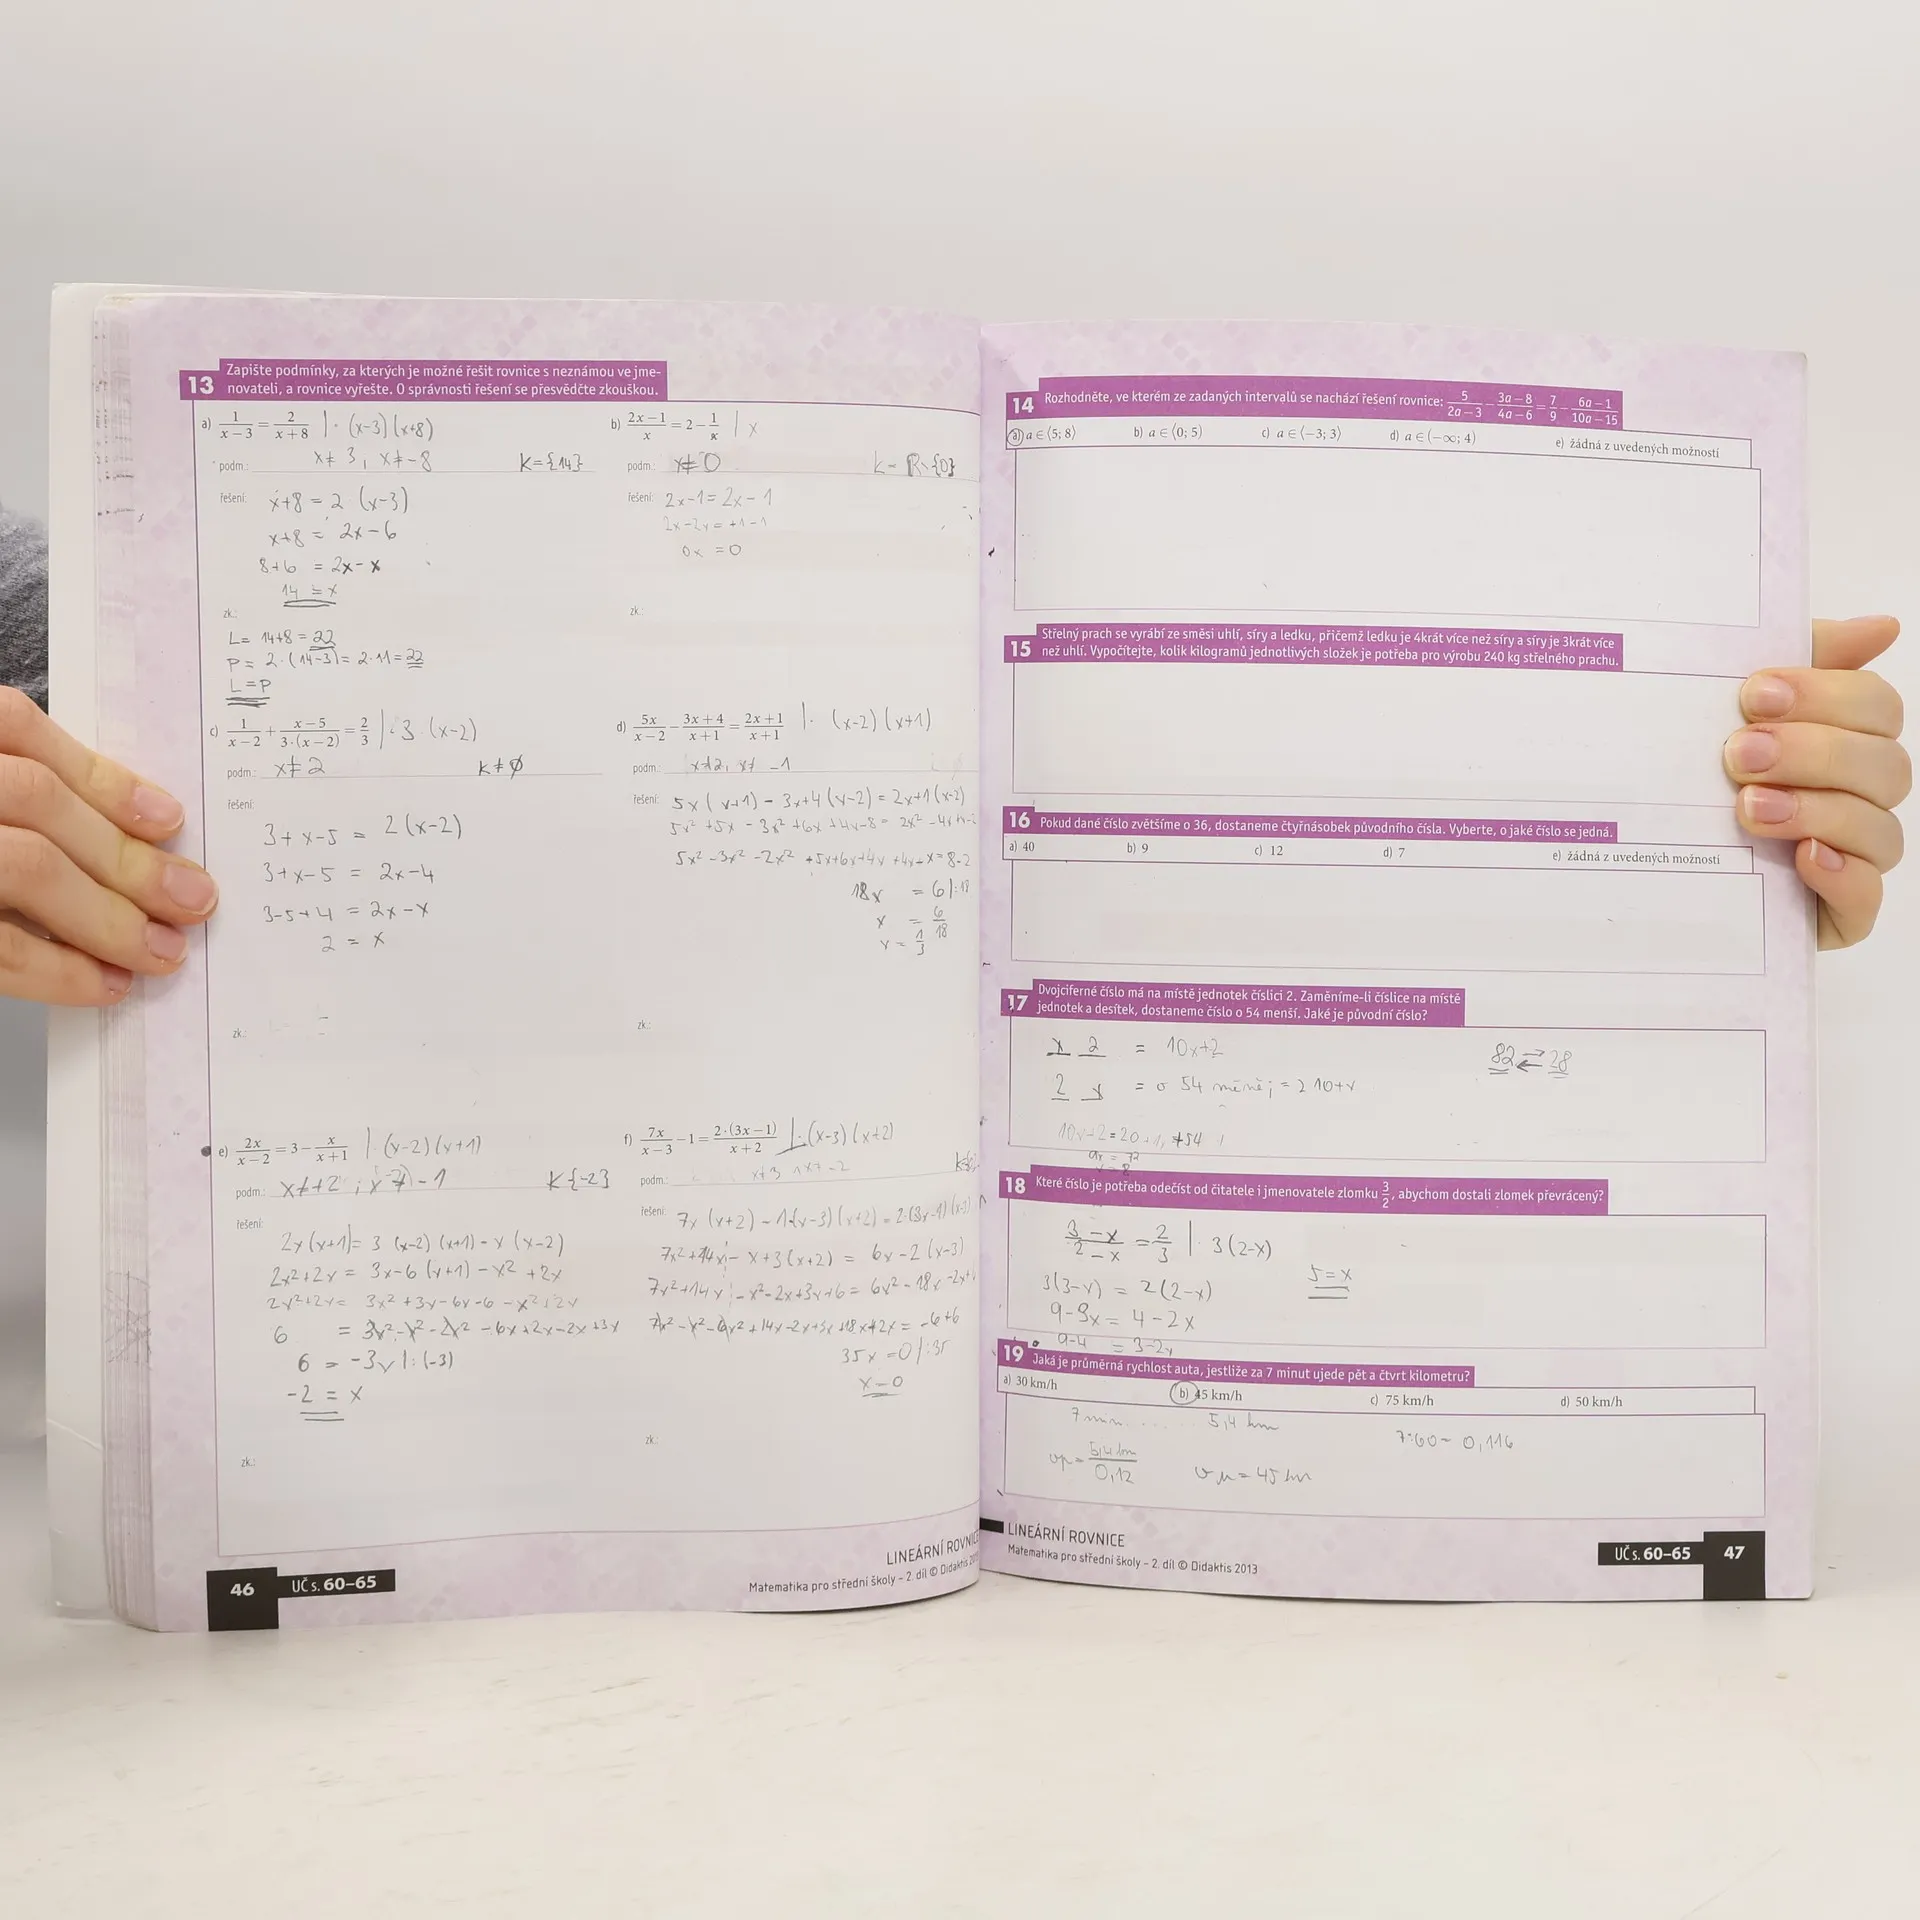 13 Zapište podmínky, za kterých je možné řešit rovnice s neznámou ve jme-
novateli, a rovnice vyřešte. O správnosti řešení se přesvědčte zkouškou.
a) 1/(x−3) = 2/(x+8) | · (x-3)(x+8)
podm.: x≠3, x≠-8 K={14}
řešení: x+8 = 2 (x-3)
x+8 = 2x-6
8+6 = 2x-x
14 = x
zk.:
L= 14+8 = 22
P= 2·(14-3)= 2·11=22
L=P
b) (2x−1)/x = 2 − 1/x | x
podm.: x≠0 K=R\{0}
řešení: 2x-1=2x-1
2x-2x=+1-1
0x =0
zk.:
c) 1/(x−2) + (x−5)/(3·(x−2)) = 2/3 | ·3·(x-2)
podm.: x≠2 K≠∅
řešení:
3+x-5 = 2(x-2)
3+x-5 = 2x-4
3-5+4 = 2x-x
2 = x
zk.:
d) 5x/(x−2) − (3x+4)/(x+1) = (2x+1)/(x+1) | · (x-2)(x+1)
podm.: x≠2, x≠ -1
řešení: 5x(x+1) - 3x+4(x-2) = 2x+1(x-2)
18x = 6 |:18
x = 6/18
x = 1/3
zk.:
e) 2x/(x−2) = 3 − x/(x+1) | ·(x-2)(x+1)
podm.: x≠+2; x≠-1 K{-2}
řešení:
2x(x+1)= 3 (x-2)(x+1)-x(x-2)
2x²+2x = 3x-6(x+1)-x²+2x
2x²+2x= 3x²+3x-6x-6-x²+2x
6 = 3x²-x²-2x²-6x+2x-2x+3x
6 = -3x |:(-3)
-2 = x
zk.:
f) 7x/(x−3) − 1 = 2·(3x−1)/(x+2) | ·(x-3)(x+2)
podm.:
řešení: 7x(x+2)-1(x-3)(x+2)=2·(3x-1)(x-3)
35x =0 |:35
x=0
zk.:
46 UČ s. 60–65
LINEÁRNÍ ROVNICE
Matematika pro střední školy – 2. díl © Didaktis
14 Rozhodněte, ve kterém ze zadaných intervalů se nachází řešení rovnice: 5/(2a−3) − (3a−8)/(4a−6) = 7/9 − (6a−1)/(10a−15)
a) a∈⟨5; 8) b) a∈⟨0; 5) c) a∈⟨−3; 3⟩ d) a∈(−∞; 4) e) žádná z uvedených možností
15 Střelný prach se vyrábí ze směsi uhlí, síry a ledku, přičemž ledku je 4krát více než síry a síry je 3krát více
než uhlí. Vypočítejte, kolik kilogramů jednotlivých složek je potřeba pro výrobu 240 kg střelného prachu.
16 Pokud dané číslo zvětšíme o 36, dostaneme čtyřnásobek původního čísla. Vyberte, o jaké číslo se jedná.
a) 40 b) 9 c) 12 d) 7 e) žádná z uvedených možností
17 Dvojciferné číslo má na místě jednotek číslici 2. Zaměníme-li číslice na místě
jednotek a desítek, dostaneme číslo o 54 menší. Jaké je původní číslo?
x 2 = 10x+2 82⇄28
2 x = o 54 méně; = 2 10+x
9x = 72
x = 8
18 Které číslo je potřeba odečíst od čitatele i jmenovatele zlomku 3/2, abychom dostali zlomek převrácený?
(3-x)/(2-x) = 2/3 | · 3(2-x)
3(3-x) = 2(2-x) 5=x
9-3x = 4-2x
9-4 = 3-2x
19 Jaká je průměrná rychlost auta, jestliže za 7 minut ujede pět a čtvrt kilometru?
a) 30 km/h b) 45 km/h c) 75 km/h d) 50 km/h
7 min ...... 5,4 km 7:60= 0,116
vp= 5,4 km/0,12
LINEÁRNÍ ROVNICE
Matematika pro střední školy – 2. díl © Didaktis 2013
UČ s. 60–65 47